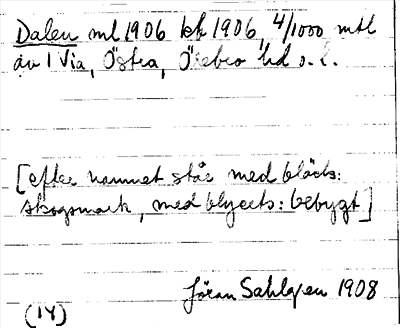 Dalen ml 1906 kk 1906, 4/1000 mtl
av 1 Via, Östra, Örebro hd o. l.
[efter namnet står med bläck:
skogsmark, med blyerts: bebyggt]
Jöran Sahlgren 1908
(14)